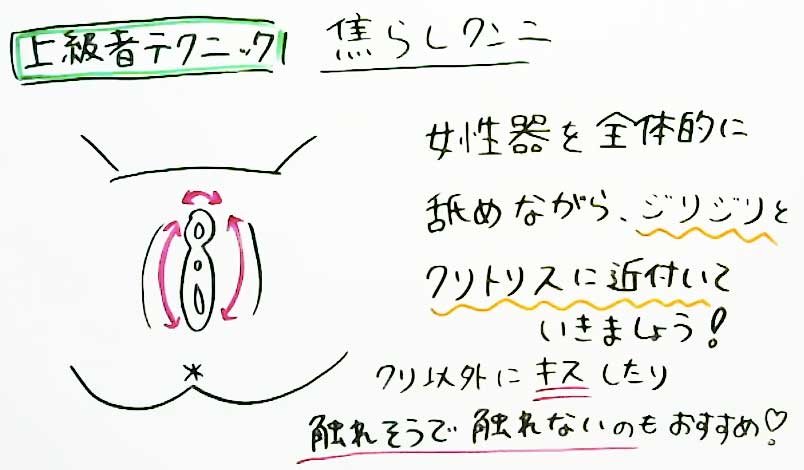 上級者テクニック 焦らしクンニ
女性器を全体的に
舐めながら、ジリジリと
クリトリスに近付いて
いきましょう!
クリ以外にキスしたり
触れそうで触れないのもおすすめ♡